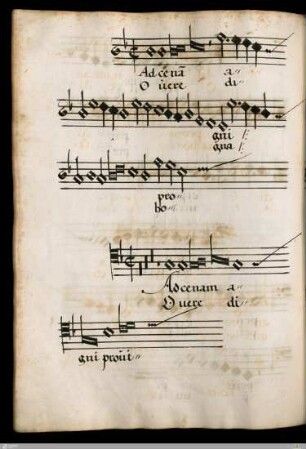 Ad cenā a-
O vere di-
gni
gna
pro-
bo-
Ad cenam a-
O vere di-
gni provi-